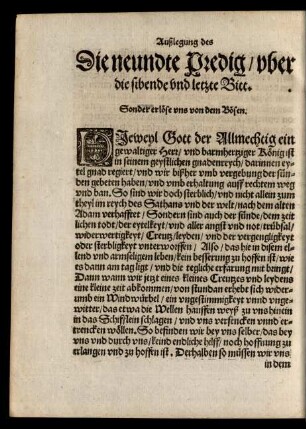 Außlegung des
Die neundte Predig / vber
die sibende vnd letzte Bitt.
Sonder erlöse vns von dem Bösen.
DJeweyl Gott der Allmechtig ein
gewaltiger Herr / vnd barmherziger König ist
in seinem geystlichen gnadenreych / darinnen eytel
gnad regiert / vnd wir bißher vmb vergebung der sün-
den gebeten haben / vnd vmb erhaltung auff rechtem weg
vnd ban. So sind wir doch sterblich / vnd nicht allein zum
theyl im reych des Sathans vnd der welt / nach dem alten
Adam verhafftet / Sondern sind auch der sünde / dem zeit
lichen todt / der eytelkeyt / vnd aller angst vnd not / trübsal /
widerwertigkeyt / Creutz / leyden / vnd der vergengligkeyt
oder sterbligkeyt vnterworffen / Also / das hie in disem el-
lend vnd armseligen leben / kein besserung zu hoffen ist / wie
es dann am tag ligt / vnd die tegliche erfarung mit bringt /
Dann wann wir jetzt eines kleines Creutzes vnd leydens
eine kleine zeit abkommen / von stundan erhebt sich wider-
umb ein Windwürbel / ein vngestimmigkeyt vnnd vnge-
witter / das etwa die Wellen hauffen weyß zu vns hinein
in das Schifflein schlagen / vnd vns versencken vnnd er-
trencken wöllen. So befinden wir bey vns selber / das bey
vns vnd durch vns / keind endliche hilff / noch hoffnung zu
erlangen vnd zu hoffen ist. Derhalben so müssen wir vns
in dem